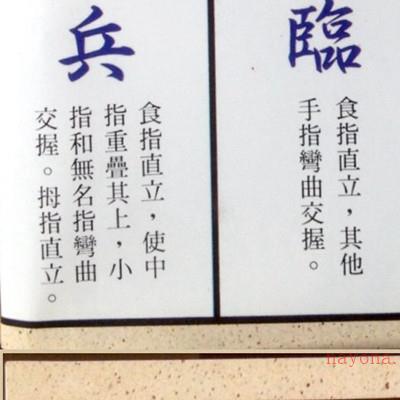 臨
食指直立，其他
手指彎曲交握。
兵
食指直立，使中
指重疊其上，小
指和無名指彎曲
交握。拇指直立。
nayona.